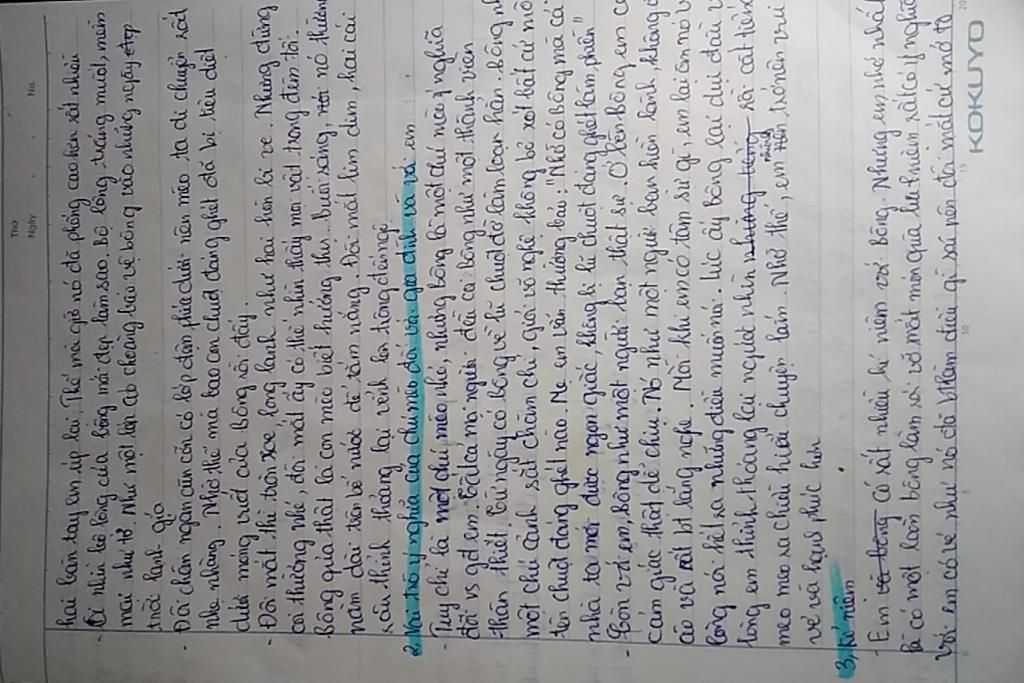 Thứ
Ngày
No.
hai bàn tay em úp lại. Thế mà giờ nó đã phổng cao hơn rất nhiều
- Ôi nhìn bộ lông của bông mới đẹp làm sao. Bộ lông trắng muốt, mềm
mại như tơ. Như một làn áo choàng bảo vệ bông vào những ngày
trời lạnh gió
- Đôi chân ngắn cũn cỡn có lớp đệm phía dưới nên mèo ta di chuyển rất
nhẹ nhàng. Nhờ thế mà bao con chuột đáng ghét đã bị tiêu diệt
dưới móng vuốt của bông rồi đấy.
- Đôi mắt thì tròn xoe, long lanh như hai hòn bi ve. Nhưng đừng
coi thường nhé, đôi mắt ấy có thể nhìn thấy mọi vật trong đêm tối.
Bông quả thật là con mèo biết hưởng thụ. Buổi sáng, nó thường
nằm dài trên bể nước để tắm nắng. Đôi mắt lim dim, hai cái
râu thỉnh thoảng lại vểnh lên trông đến ngộ
2, Vai trò, ý nghĩa của chú mèo đối với gia đình và với em
- Tuy chỉ là một chú mèo nhỏ, nhưng bông là một chú mèo ý nghĩa
đối vs gđ em. Tất cả mọi người đều coi bông như một thành viên
thân thiết. Từ ngày có bông về lũ chuột đỡ làm loạn hẳn. bông như
một chú cảnh sát chăm chỉ, giỏi võ nghệ không bỏ xót bất cứ một
tên chuột đáng ghét nào. Mẹ em vẫn thường bảo: "Nhờ có bông mà cả
nhà ta mới được ngon giấc, không bị lũ chuột đáng ghét làm phiền"
- Còn với em, bông như một người bạn thật sự. Ở bên bông, em có
cảm giác thật dễ chịu. Nó như một người bạn hiền lành, không ồn
ào và rất bt lắng nghe. Mỗi khi em có tâm sự gì, em lại ôm nó vào
lòng nói hết ra những điều muốn nói. Lúc ấy bông lại dụi đầu vào
lòng em thỉnh thoảng lại ngước nhìn những tiếng rồi cất tiếng
meo meo ra chiều hiểu chuyện lắm. Nhờ thế, em trở nên vui
vẻ và hạnh phúc hơn
3, Kỉ niệm
- Em có rất nhiều kỉ niệm với bông. Nhưng em nhớ nhất
là có một lần bông làm rơi vỡ một món quà lưu niệm rất có ý nghĩa
Với em có vẻ như nó đã bt làm điều gì sai nên đôi mắt cứ mở to
KOKUYO